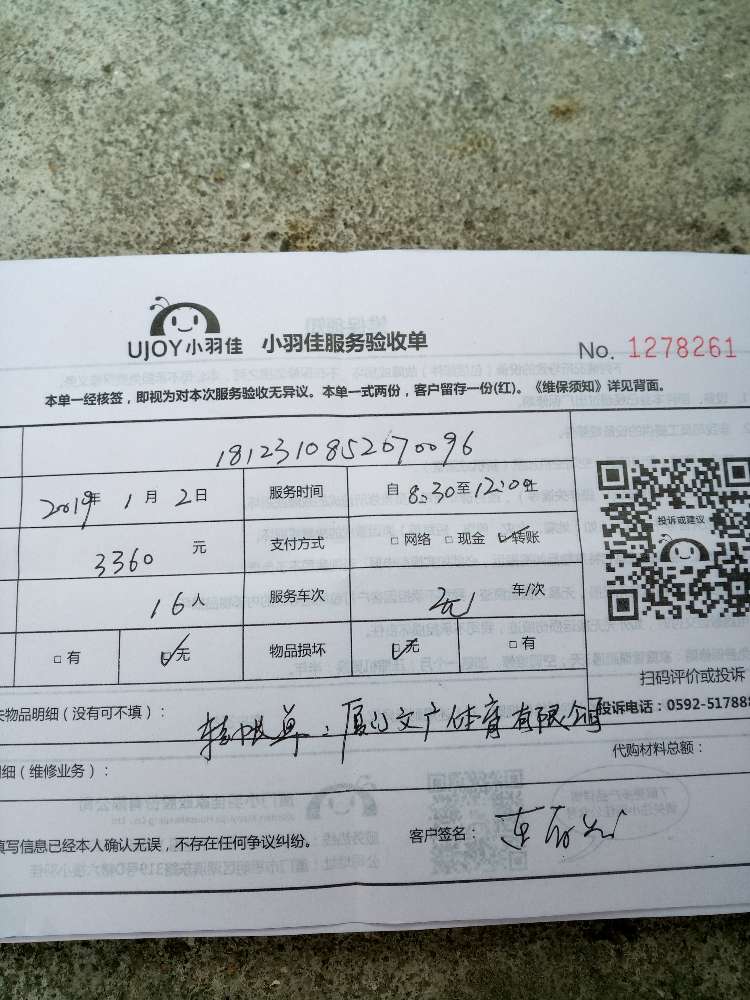 UJOY小羽佳 小羽佳服务验收单
No. 1278261
本单一经核签，即视为对本次服务验收无异议。本单一式两份，客户留存一份(红)。《维保须知》详见背面。
1812310852070096
2019年 1月 2日 服务时间 自 8:30至12:00止
3360 元 支付方式 □ 网络 □ 现金 ☑转账
投诉或建议
16人 服务车次 2 车/次
□ 有 ☑无 物品损坏 ☑无 □ 有
扫码评价或投诉
物品明细（没有可不填）： 转帐单：厦门文广体育有限公司
投诉电话：0592-51788
细（维修业务）： 代购材料总额：
填写信息已经本人确认无误，不存在任何争议纠纷。 客户签名：